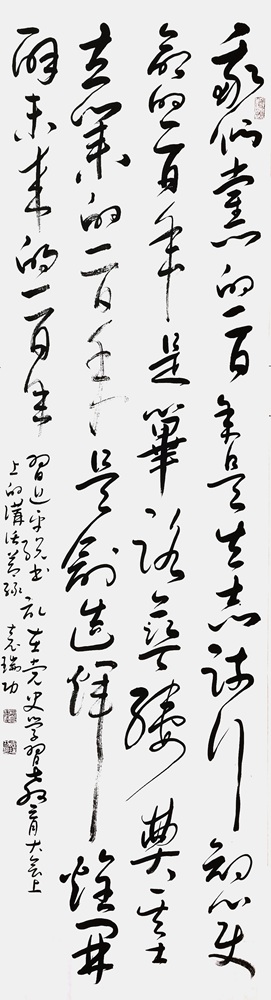 我們黨的一百年是矢志踐行初心使
命的一百年是篳路藍縷奠基
立業的一百年是創造輝煌開
辟未来的一百年
習近平總书記在党史学習教育大会上
上的講话
瑞功